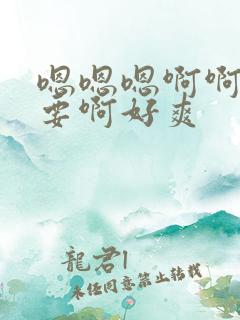 嗯嗯嗯啊啊
要啊好爽
龍君l
未任同意禁止转载